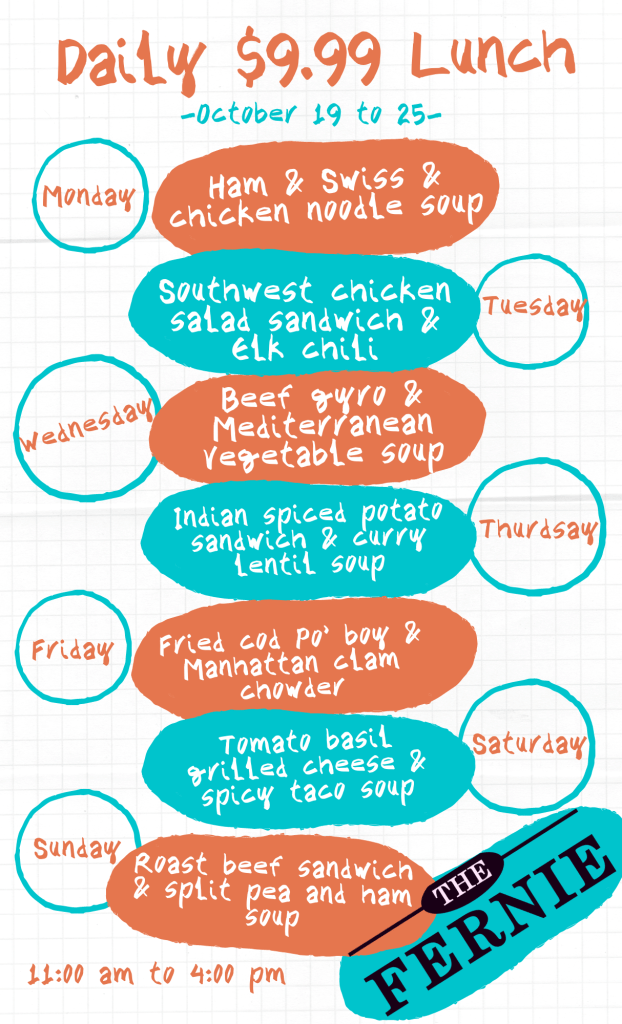 Daily $9.99 Lunch
-October 19 to 25-
Monday
Ham & Swiss &
chicken noodle soup
Tuesday
Southwest chicken
salad sandwich &
Elk chili
Wednesday
Beef gyro &
Mediterranean
vegetable soup
Thurdsay
Indian spiced potato
sandwich & curry
lentil soup
Friday
Fried cod Po' boy &
Manhattan clam
chowder
Saturday
Tomato basil
grilled cheese &
spicy taco soup
Sunday
Roast beef sandwich
& split pea and ham
soup
THE
FERNIE
11:00 am to 4:00 pm